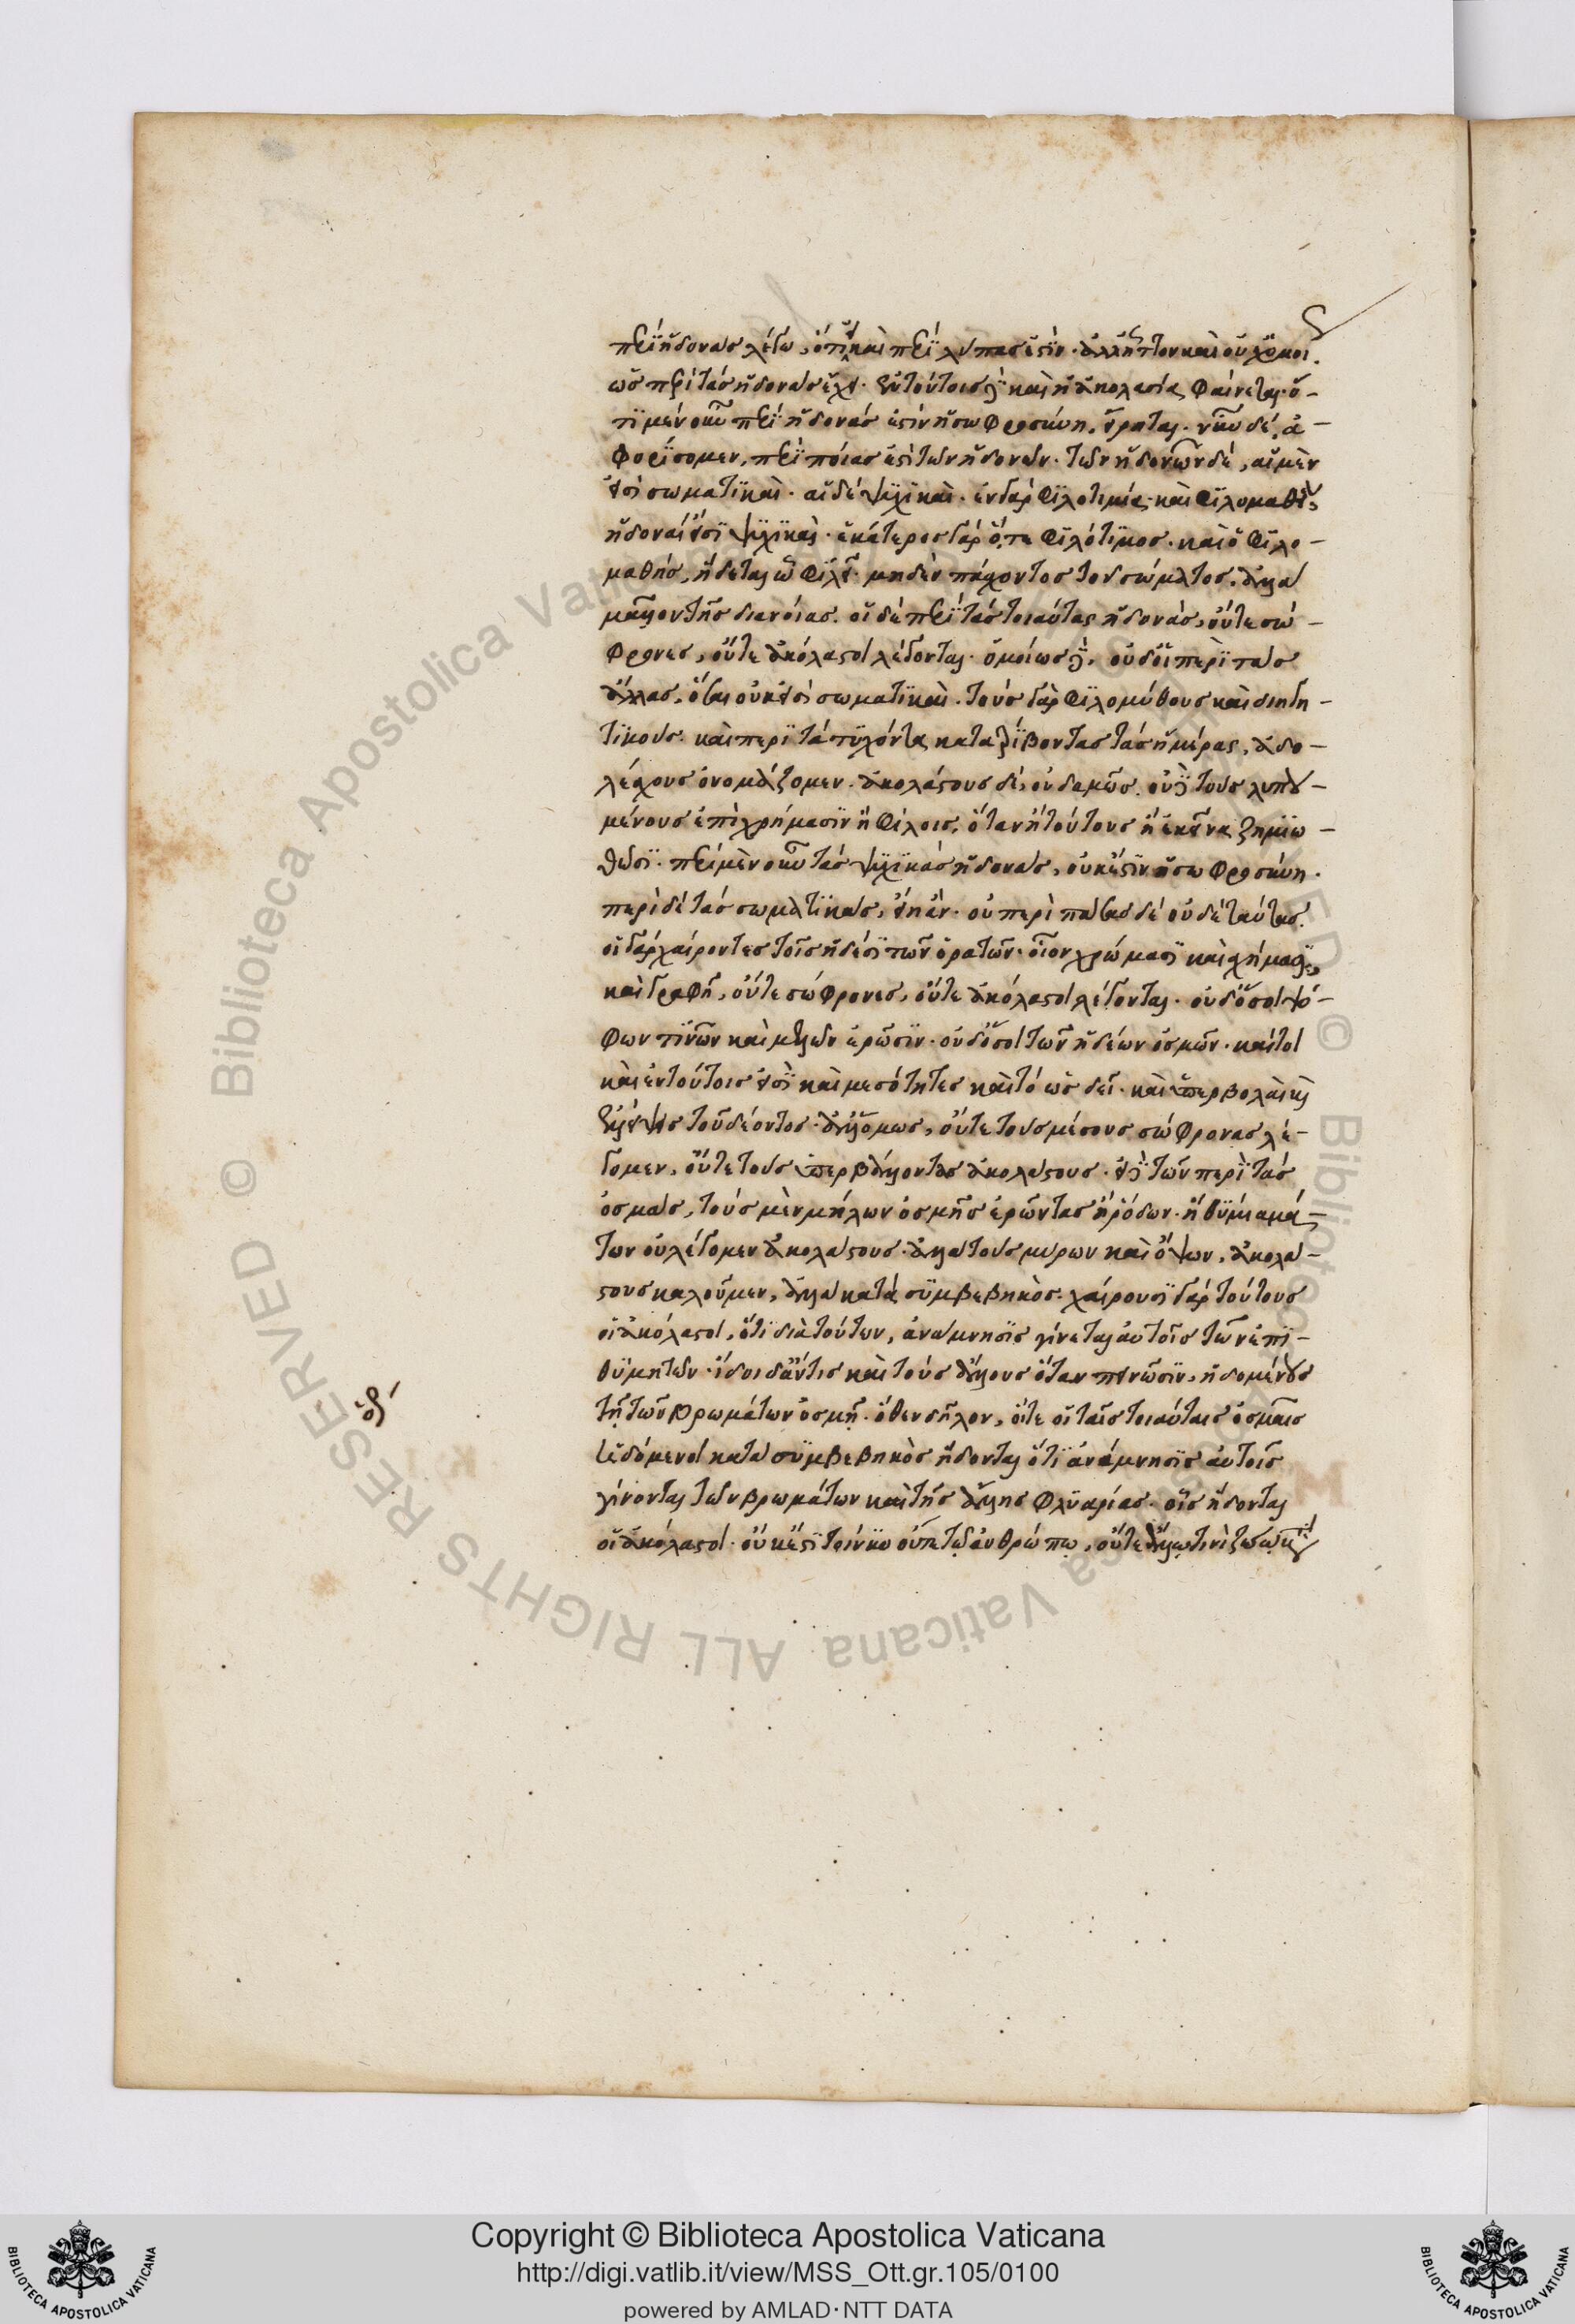 περὶ ἡδονὰς λέγω, ὅτι καὶ περὶ λύπας ἐστὶν. ἀλλ' ἧττον καὶ οὐχ ὁμοί
ως περὶ τὰς ἡδονὰς ἔχει. ἐν τούτοις δὲ καὶ ἡ ἀκολασία φαίνεται. ὅ-
τι μὲν οὖν περὶ ἡδονάς ἐστὶν ἡ σωφροσύνη, εἴρηται. νῦν δὲ, ἀ-
φορίσομεν, περὶ ποίας ἐστὶ τῶν ἡδονῶν. τῶν ἡδονῶν δὲ, αἱ μὲν
εἰσὶ σωματικαὶ. αἱ δὲ ψυχικαὶ. ἐν γὰρ φιλοτιμία καὶ φιλομαθεία
ἡδοναί εἰσι ψυχικαὶ. ἑκάτερος γὰρ ὅ,τε φιλότιμος. καὶ ὁ φιλο-
μαθής, ἥδεται ᾧ φιλεῖ. μηδὲν πάσχοντος τοῦ σώματος. ἀλλὰ
μᾶλλον τῆς διανοίας. οἱ δὲ περὶ τὰς τοιαύτας ἡδονὰς, οὔτε σώ-
φρονες, οὔτε ἀκόλαστοι λέγονται. ὁμοίως δὲ, οὐδ' οἱ περὶ τὰς
ἄλλας, ὅσαι οὐκ εἰσὶ σωματικαὶ. τοὺς γὰρ φιλομύθους καὶ διηγη-
τικοὺς. καὶ περὶ τὰ τυχόντα κατατρίβοντας τὰς ἡμέρας, ἀδο-
λέσχους ὀνομάζομεν. ἀκολάστους δέ, οὐδαμῶς. οὐδὲ τοὺς λυπου-
μένους ἐπὶ χρήμασιν ἢ φίλοις, ὅταν ἢ τούτους ἢ ἐκεῖνα ζημιω-
θῶσι. περὶ μὲν οὖν τὰς ψυχικάς ἡδονὰς, οὐκ ἔστιν ἡ σωφροσύνη.
περὶ δὲ τὰς σωματικὰς, εἴη ἄν. οὐ περὶ πάσας δέ οὐδὲ ταύτας.
οἱ γὰρ χαίροντες τοῖς ἡδέσι τῶν ὁρατῶν. οἷον χρώμασι καὶ σχήμασι,
καὶ γραφῇ, οὔτε σώφρονες, οὔτε ἀκόλαστοι λέγονται. οὐδ' ὅσοι ψό-
φων τινῶν καὶ μελῶν ἐρῶσιν. οὐδ' ὅσοι τῶν ἡδέων ὀσμῶν. καίτοι
καὶ ἐν τούτοις εἰσὶ καὶ μεσότητες καὶ τὸ ὡς δεῖ. καὶ ὑπερβολαὶ καὶ
ἐλλείψεις τοῦ δέοντος. ἀλλ' ὅμως, οὔτε τοὺς μέσους σώφρονας λέ-
γομεν, οὔτε τοὺς ὑπερβάλλοντας ἀκολάστους. ἐπὶ τῶν περὶ τὰς
ὀσμὰς, τοὺς μὲν μήλων ὀσμῆς ἐρῶντας ἢ ῥόδων. ἢ θυμιαμά-
των οὐ λέγομεν ἀκολάστους. ἀλλὰ τοὺς μύρων καὶ ὄψων, ἀκολά-
στους καλοῦμεν, ἀλλὰ κατὰ συμβεβηκὸς. χαίρουσι γὰρ τούτους
οἱ ἀκόλαστοι, ὅτι διὰ τούτων, ἀνάμνησις γίνεται αὐτοῖς τῶν ἐπι-
θυμητῶν. ἴδοι δ' ἄν τις καὶ τοὺς ἄλλους ὅταν πεινῶσιν, ἡδομένους
τῇ τῶν βρωμάτων ὀσμῇ. ὅθεν δῆλον, ὅτι οἱ ταῖς τοιαύταις ὀσμαῖς
ἡδόμενοι κατὰ συμβεβηκὸς ἥδονται ὅτι ἀνάμνησις αὐτοῖς
γίνονται τῶν βρωμάτων καὶ τῆς ἄλλης φλυαρίας. οἷς ἥδονται
οἱ ἀκόλαστοι. οὐκ ἔστι τοίνυν οὔτε τῷ ἀνθρώπῳ, οὔτε ἄλλῳ τινὶ ζώῳ